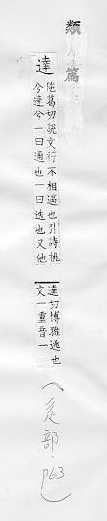 類篇
達
葛切說文行不相遇也引詩挑
兮達兮一曰通也一曰迭也又他
達切博雅也
文一重音一
(辵部,p63)